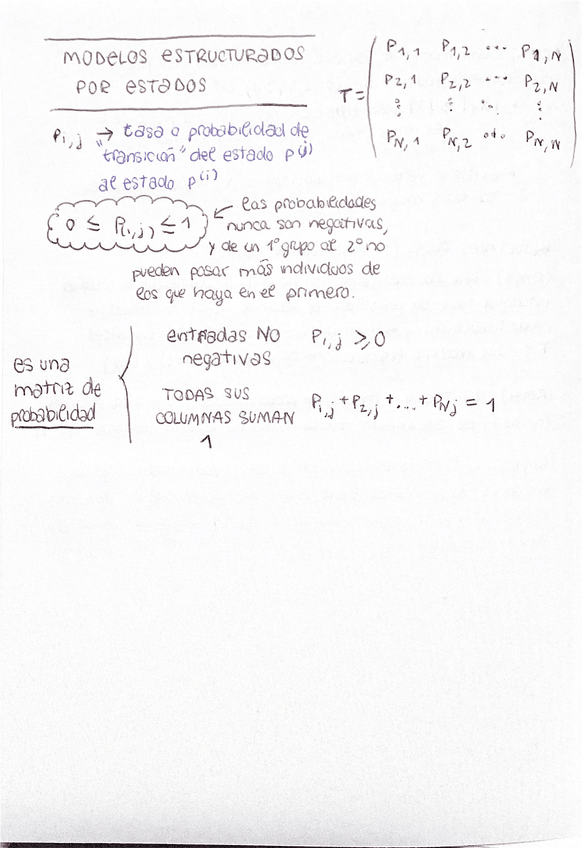 MODELOS ESTRUCTURADOS
POR ESTADOS
T = ( P1,1 P1,2 ... P1,N
P2,1 P2,2 ... P2,N
⋮ ⋮ ⋱ ⋮
PN,1 PN,2 ... PN,N )
Pi,j → tasa o probabilidad de
"transición" del estado p(j)
al estado p(i)
0 ≤ Pi,j ≤ 1
← las probabilidades
nunca son negativas,
y de un 1º grupo al 2º no
pueden pasar más individuos de
los que haya en el primero.
es una
matriz de
probabilidad
entradas NO
negativas
Pi,j ≥ 0
TODAS SUS
COLUMNAS SUMAN
1
P1,j + P2,j + ... + PN,j = 1